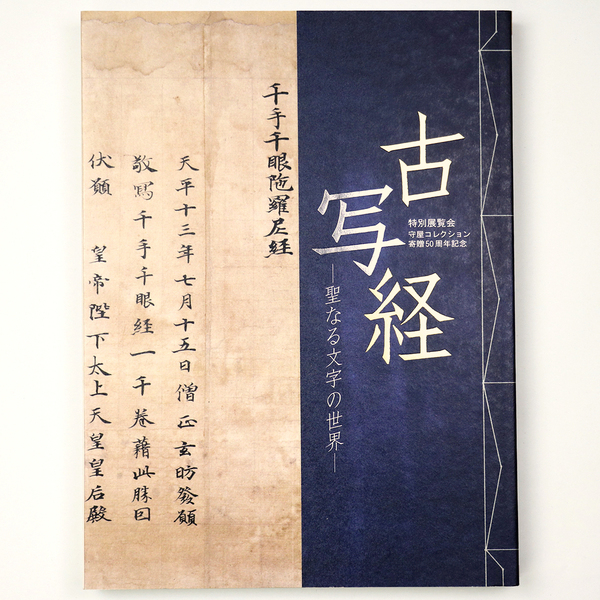 古写経
特別展覧会
守屋コレクション
寄贈50周年記念
―聖なる文字の世界―
千手千眼陀羅尼経
天平十三年七月十五日僧正玄昉發願
敬寫千手千眼経一千卷藉此勝因
伏願 皇帝陛下太上天皇皇后殿